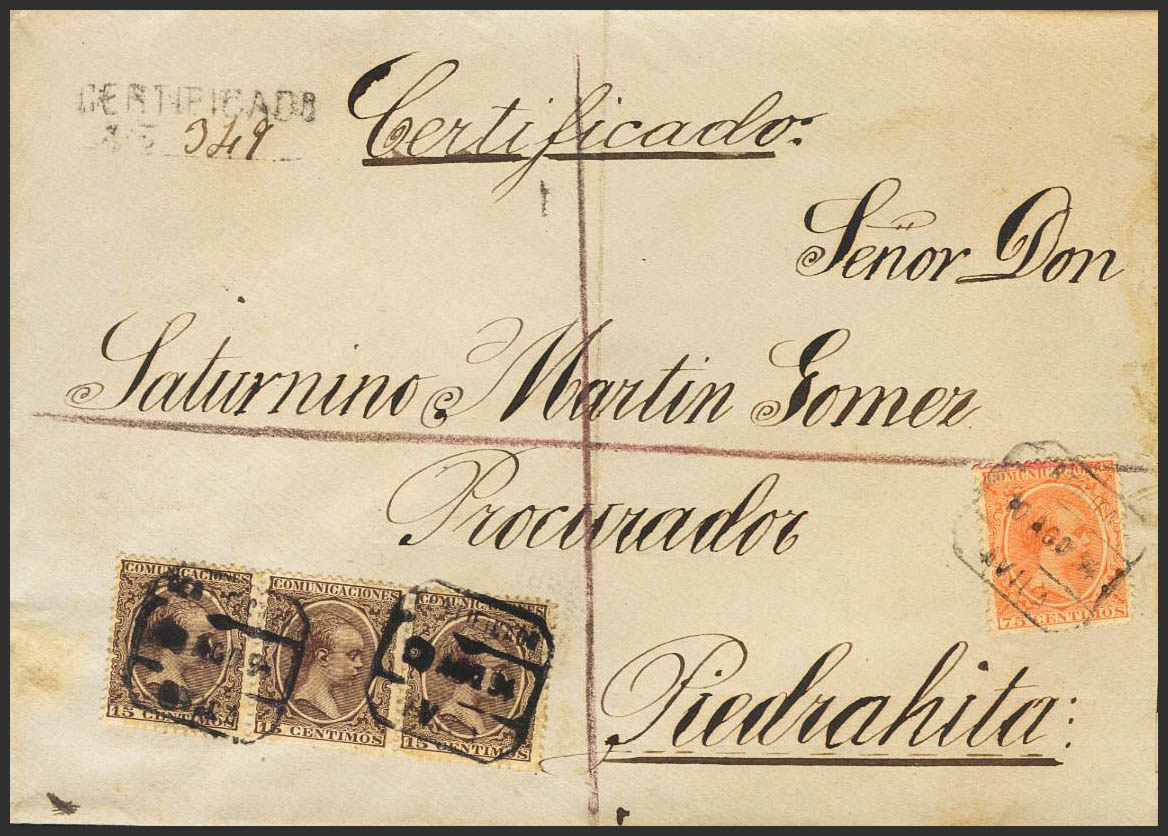 CERTIFICADO
349
Certificado:
Señor Don
Saturnino Martin Gomez
Procurador
Piedrahita:
COMUNICACIONES
75 CENTIMOS
AGO 94
AVILA
COMUNICACIONES
15 CENTIMOS
COMUNICACIONES
15 CENTIMOS
COMUNICACIONES
15 CENTIMOS